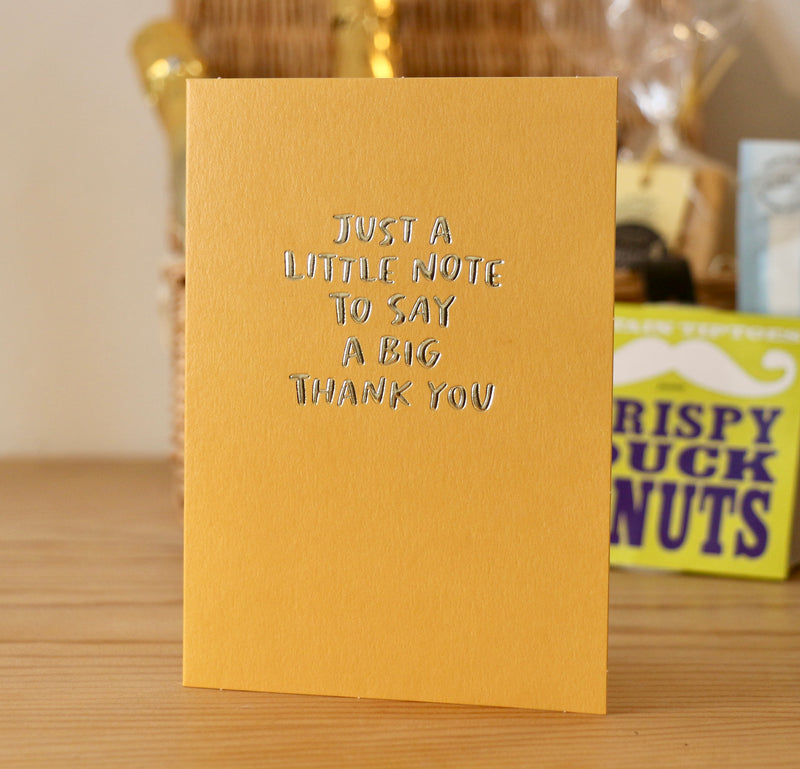 JUST A
LITTLE NOTE
TO SAY
A BIG
THANK YOU
RISPY
UCK
NUTS